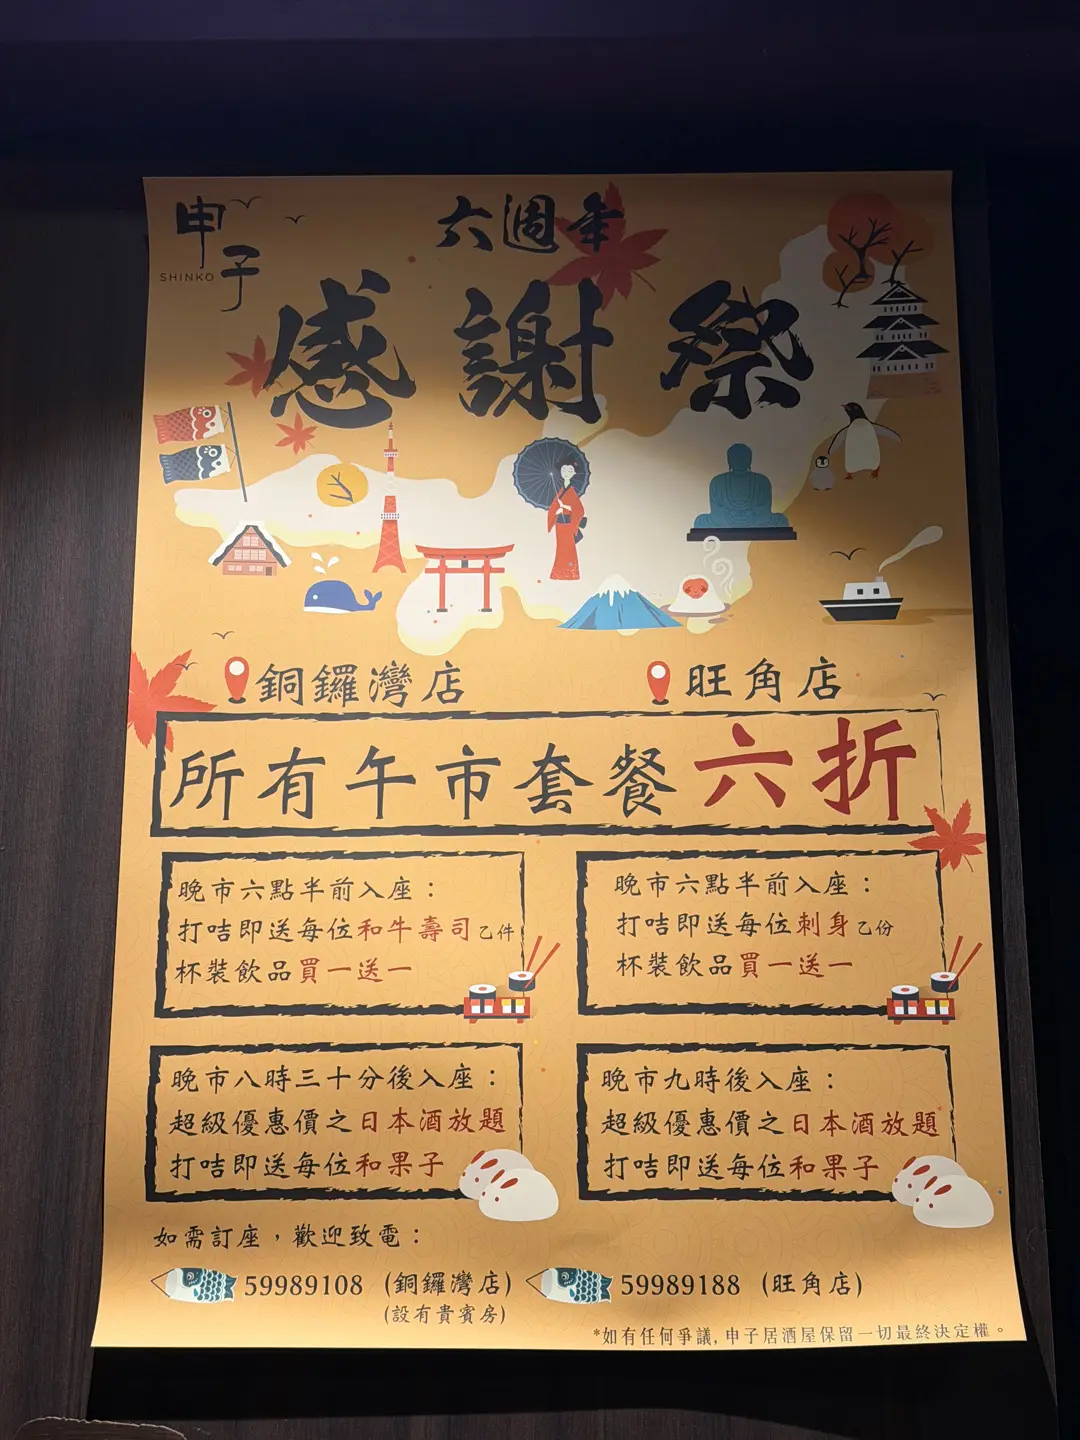 申子
SHINKO
六週年
感謝祭
銅鑼灣店
旺角店
所有午市套餐六折
晚市六點半前入座：
打咭即送每位和牛壽司乙件
杯裝飲品買一送一
晚市六點半前入座：
打咭即送每位刺身乙份
杯裝飲品買一送一
晚市八時三十分後入座：
超級優惠價之日本酒放題
打咭即送每位和果子
晚市九時後入座：
超級優惠價之日本酒放題
打咭即送每位和果子
如需訂座，歡迎致電：
59989108 (銅鑼灣店)
(設有貴賓房)
59989188 (旺角店)
*如有任何爭議, 申子居酒屋保留一切最終決定權。